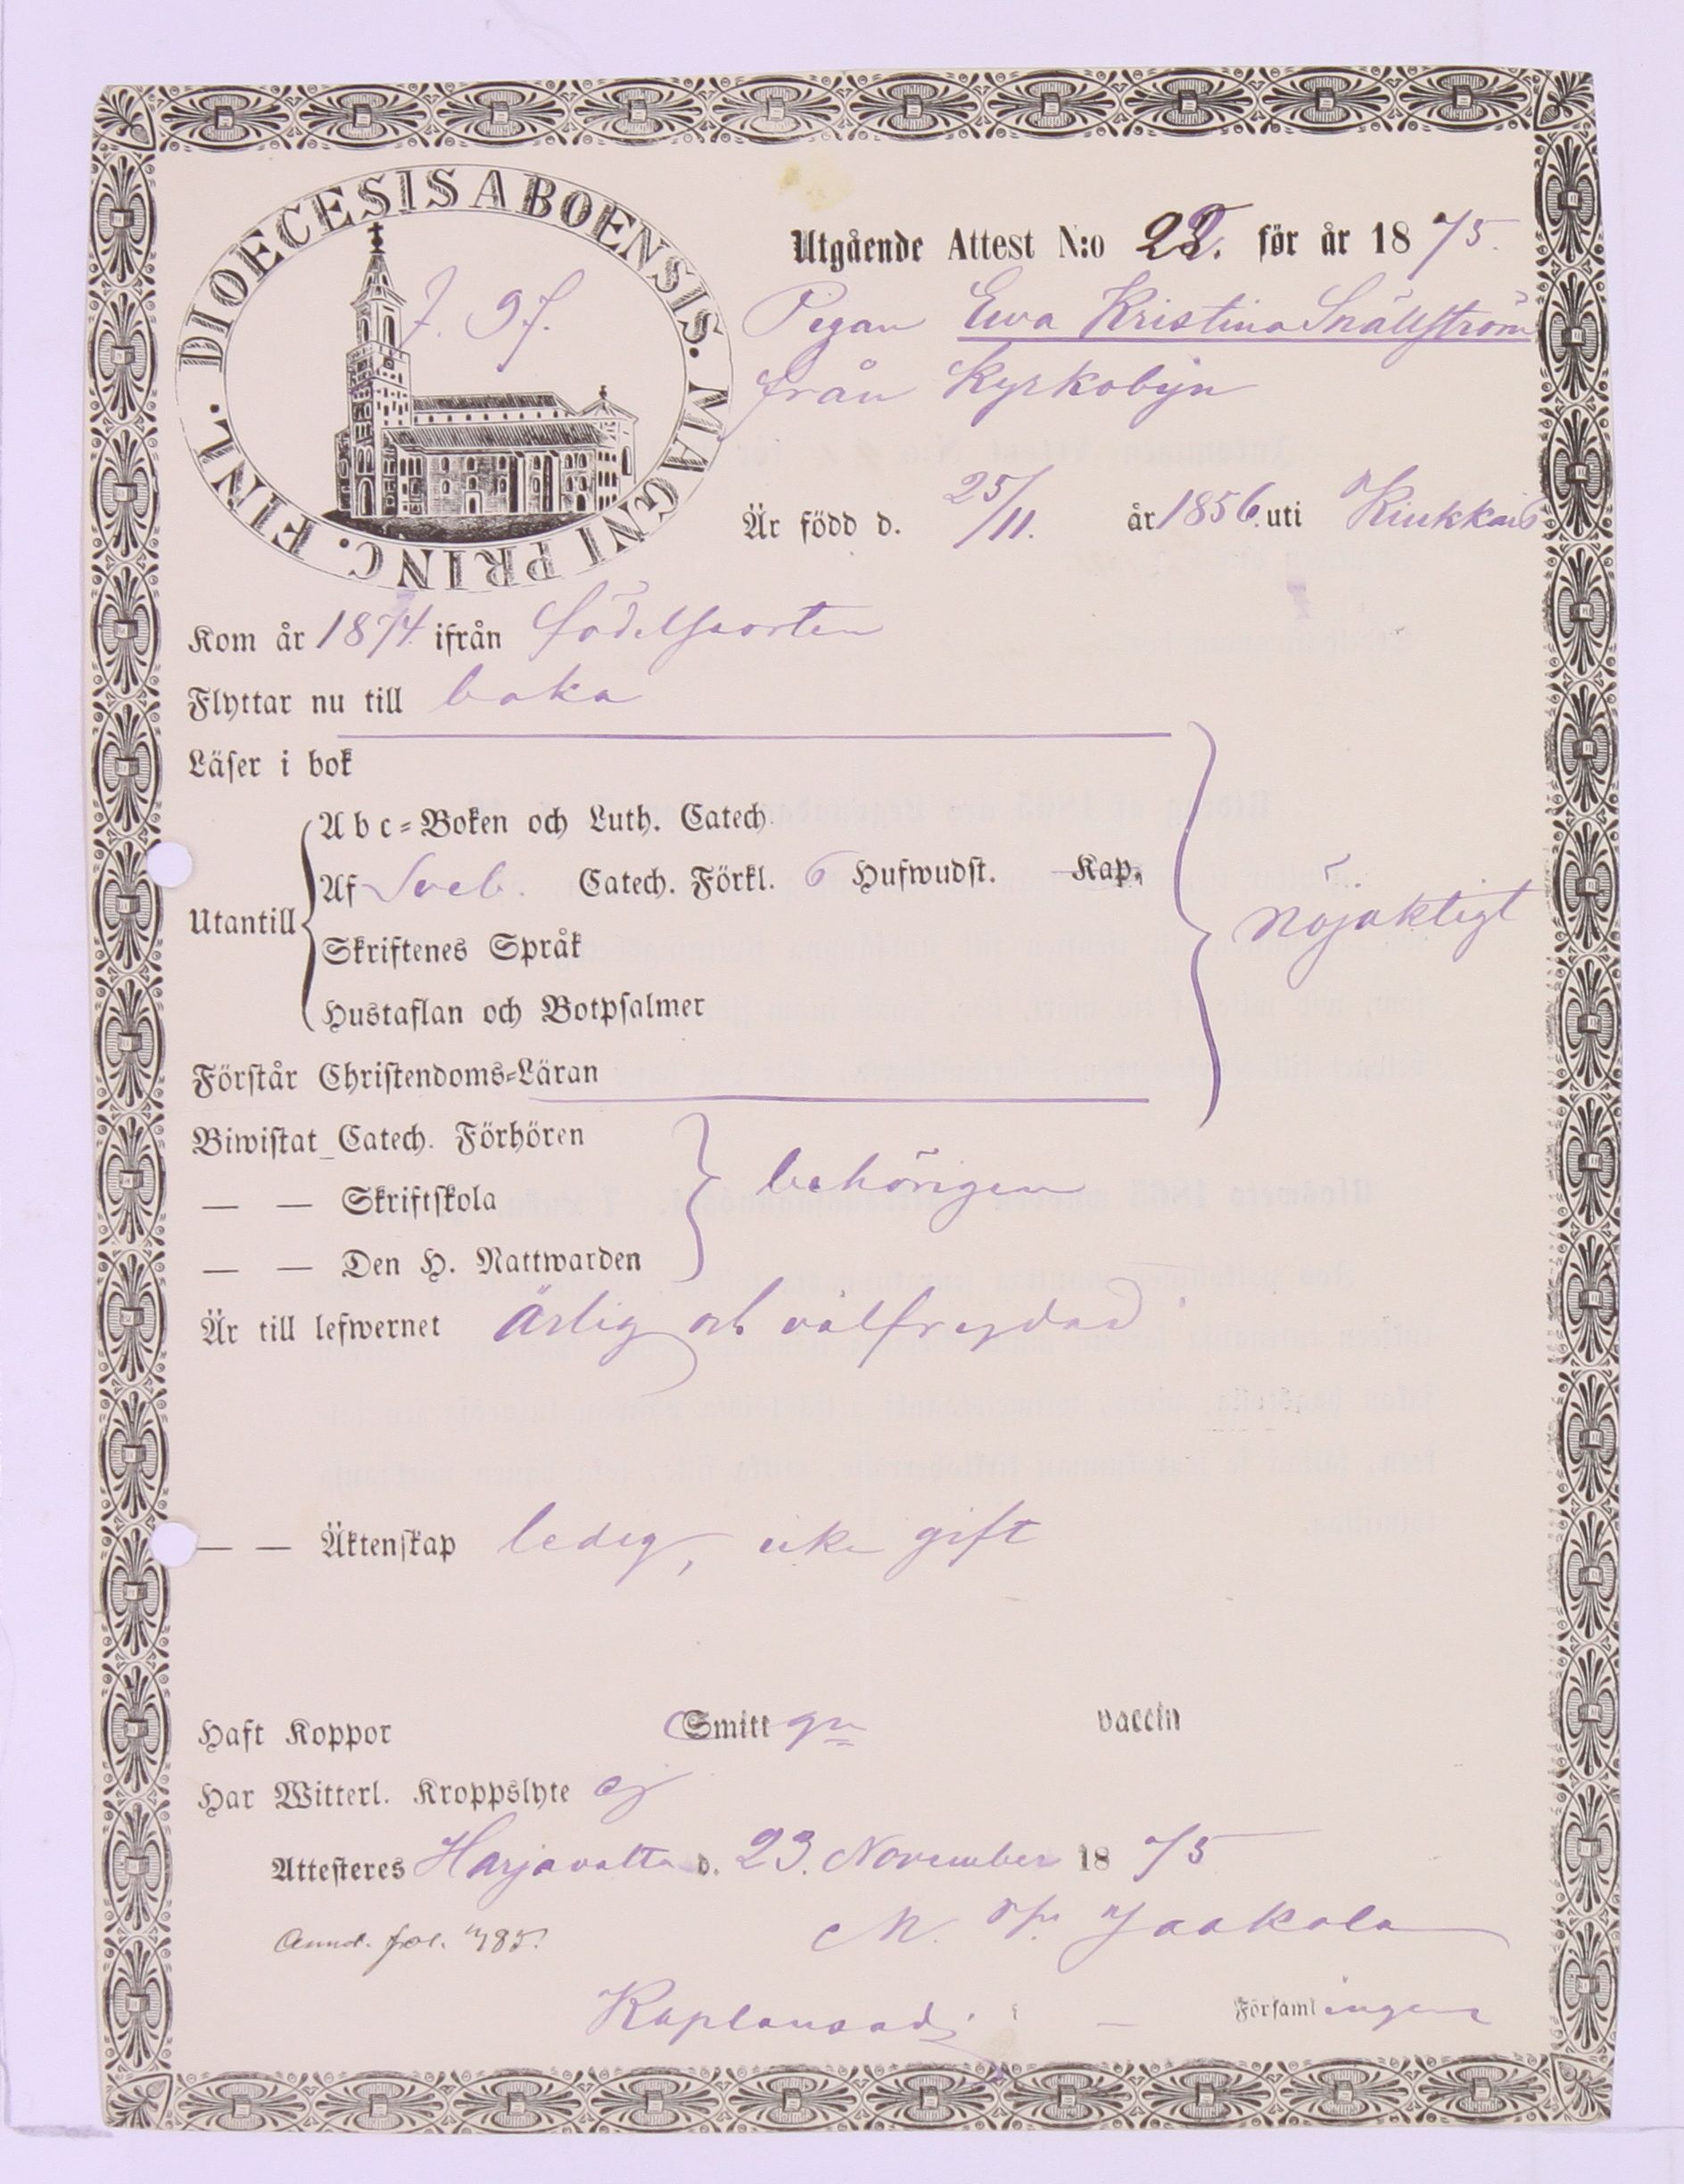 DIOECESIS ABOENSIS. MAGNI PRINC. FINL.
Utgående Attest N:o 22. för år 1875.
Pigan Ewa Kristina Snällström
från Kyrkobyn
Är född d. 25/11. år 1856. uti Kiukkais
Kom år 1874 ifrån
Flyttar nu till
Läser i bok
Abc-Boken och Luth. Catech.
Utantill
Af Sveb. Catech. Förkl. 6 Hufwudst. Kap.
Skriftenes Språk
nöjaktigt
Hustaflan och Botpsalmer
Förstår Christendoms-Läran
Biwistat Catech. Förhören
— — Skriftskola
behörigen
— — Den H. Nattwarden
Är till lefwernet ärlig och välfreydad
— — Äktenskap ledig, icke gift
Haft Koppor Smitt vaccin
Har Witterl. Kroppslyte ej
Attesteres Harjavalta d. 23. November 1875
M. Jaakola
Annot. fol. 485.
Kaplansadj. i — Församlingen